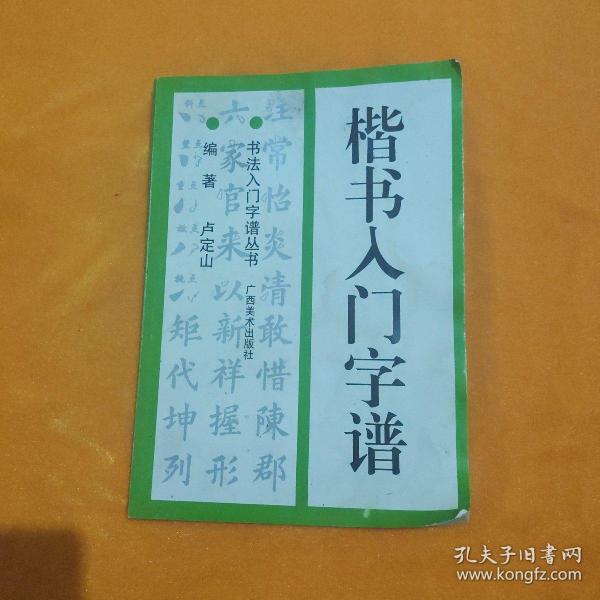 楷书入门字谱
书法入门字谱丛书
广西美术出版社
编著 卢定山
注常怡炎清敢惜陳郡
六家官来以新祥握形
斜点
竖点
矩代坤列
孔夫子旧书网
www.kongfz.com